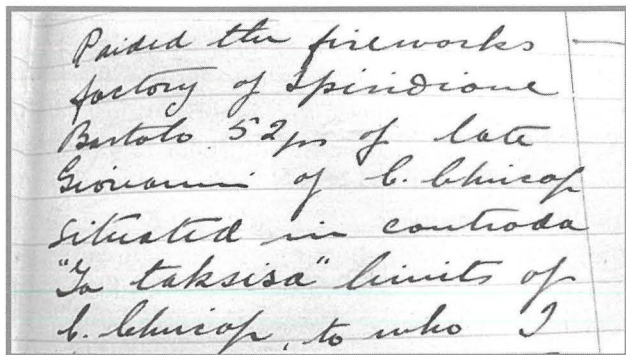 Raided the fireworks
factory of Spiridione
Bartolo 52 yrs of late
Giovanni of C. Chircop
situated in contrada
"Ta taksisa" limits of
C. Chircop, to who I